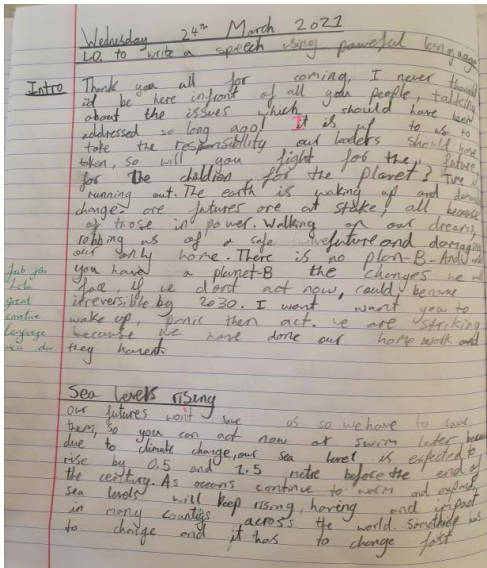 Wednesday 24th March 2021
L.O. to write a speech using powerful language
Intro
Thank you all for coming, I never thought
i'd be here infront of all you people, talking
about the issues which should have been
addressed so long ago! It is up to us to
take the responsibility our leaders should have
taken, so will you fight for the future,
for the children for the planet? Time is
running out. The earth is waking up and demands
change. ore futures are at stake, all because
of those in power. Walking on our dreams,
robbing us of a safe future and damaging
our only home. There is no plan-B. And
you have a planet-B the changes we
face, if we dont act now, could become
irreversible by 2030. I want want you to
wake up, panic then act. we are striking
because we have done our homework and
they havent.
great
language
Sea levels rising
Our futures won't save us so we have to save
them, so you can act now or swim later
due to climate change, our sea level is expected to
rise by 0.5 and 1.5 metre before the end of
the century. As oceans continue to warm and
sea levels will keep rising, having and impact
in many across the world. Something has
to change and it has to change fast